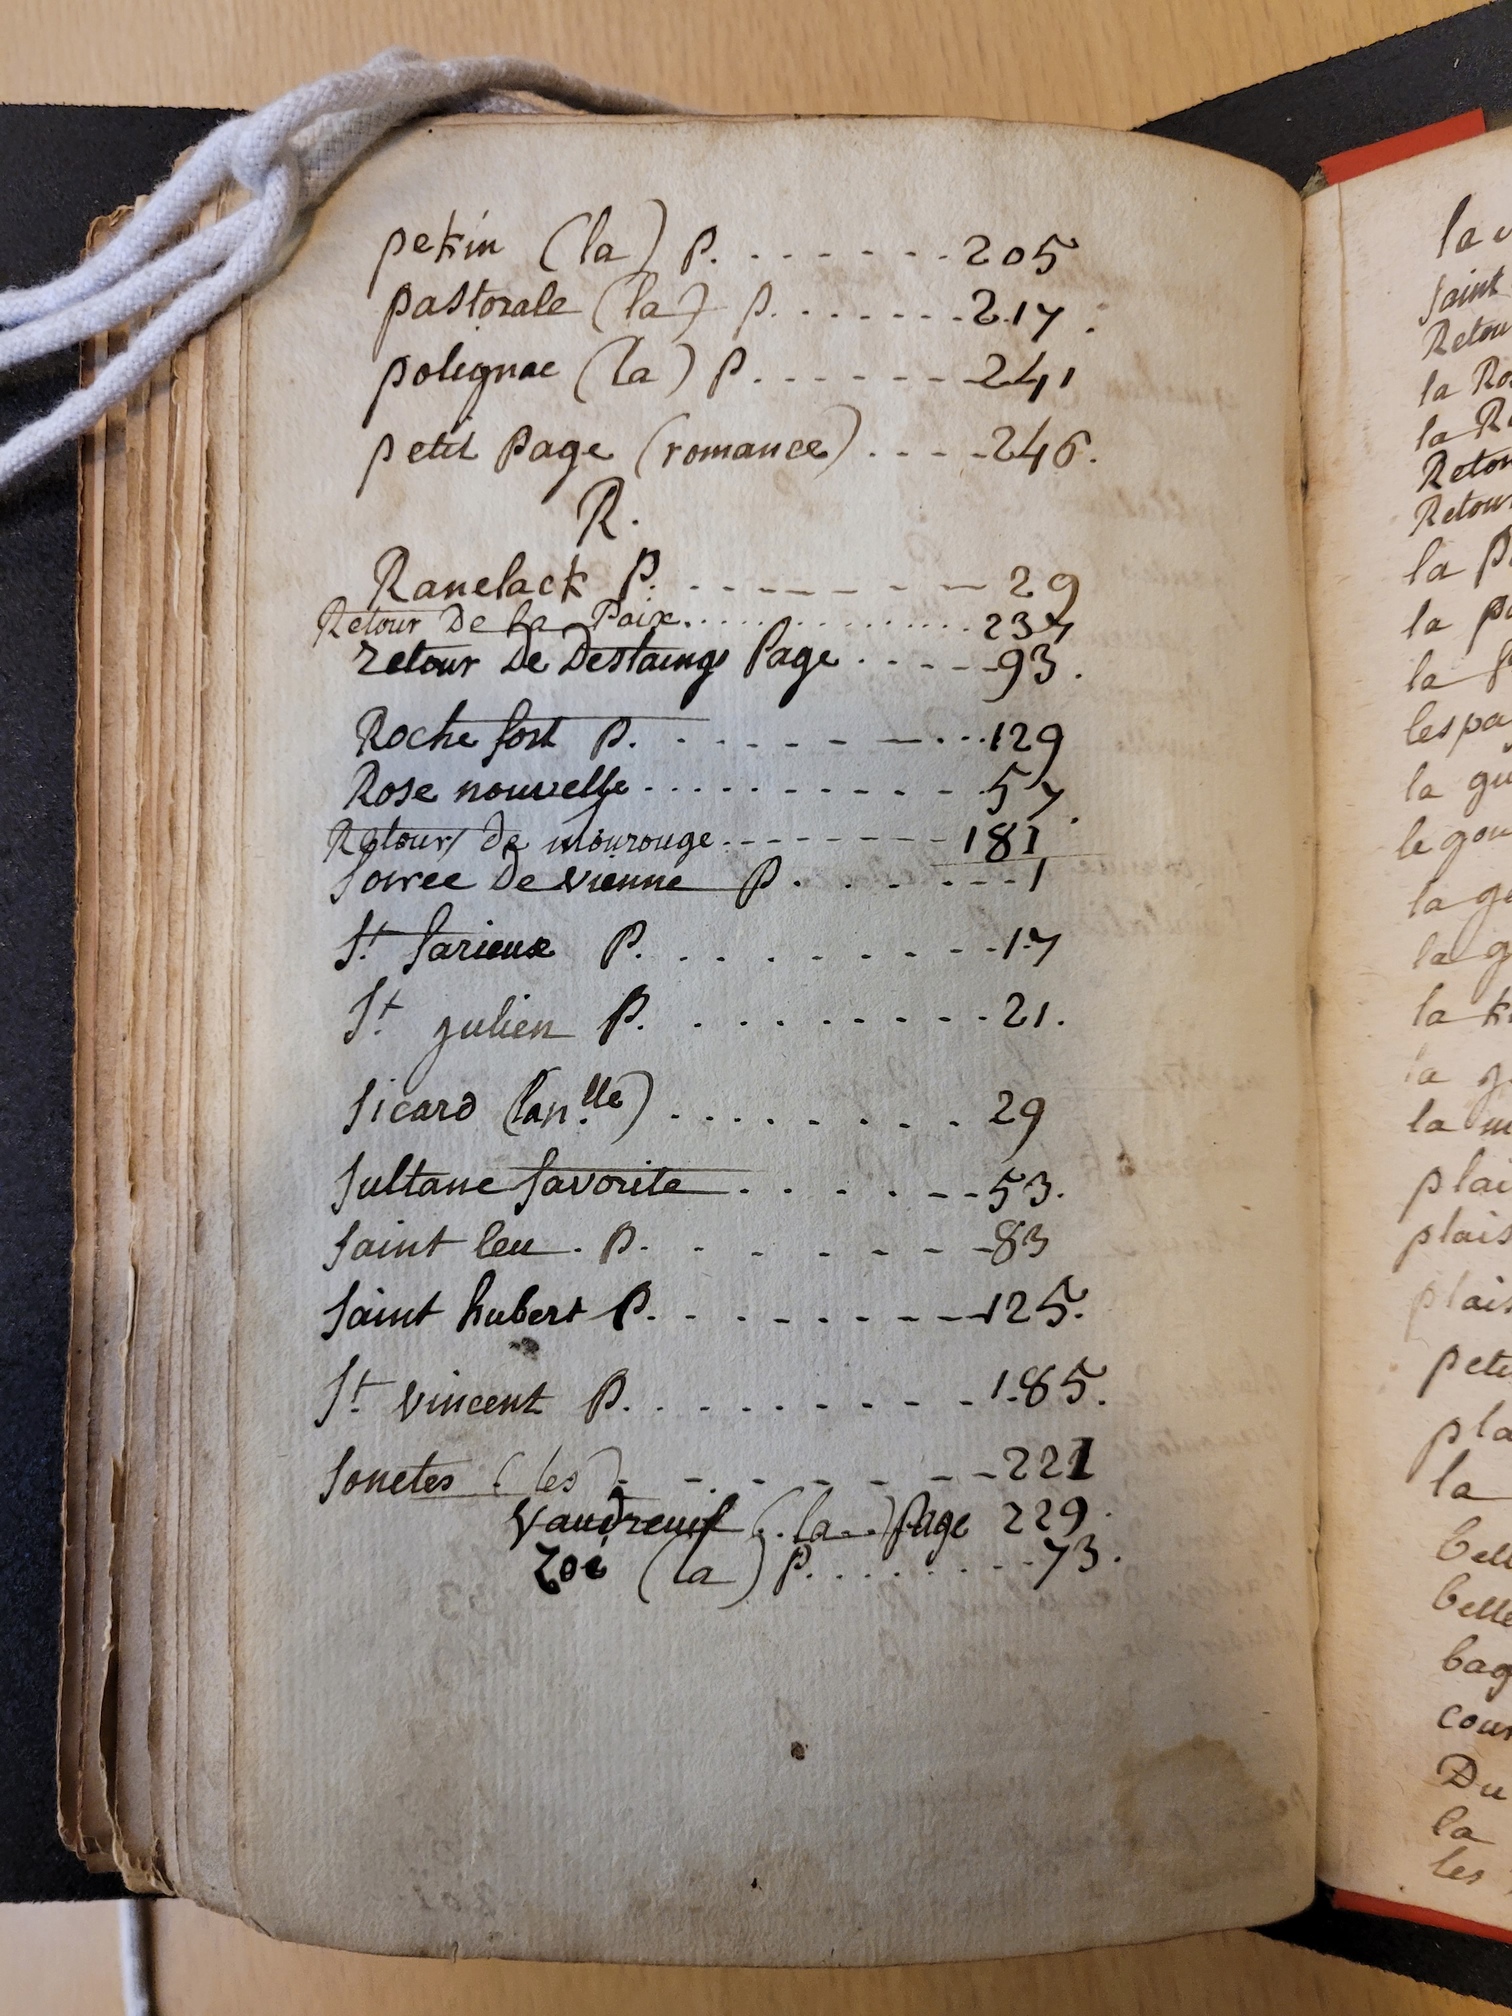 pekin (la) P. . . . . . . . 205
pastorale (la) p. . . . . . . . 217 .
polignac (la) P. - - - - - - 241
petit Page (romance) . - - - 246.
R.
Ranelack P. - - - - - - - 29
Retour De la Paix. . . . . . . . . . 237
retour De Destaing Page . - - - - 93.
Roche fort P. . . - - - - - . . . 129
Rose nouvelle . . . . . . . . . . - 57.
Retour De mourouge - - - - - - - - 181
Soiree De vienne P . . . . - - - 1
St. Sarieux P. . . . . . . - - - 17
St. julien P. . . . . . . . . - - 21.
Sicard (lan.lle) . . . . . . . . 29
Sultane favorite . . . . . - - - 53.
Saint leu . P. . . - - - - - - 83
Saint hubert P. - . - - - - - - - 125.
St. vincent P. . . . . . . . . - - 185.
Sonetes (les) - - - - - - - 221
Vaudreuil (. la . .) Page 229.
Zoé (la) P. . . . . . . - - - 73.
la
Saint
Retou
la Ro
la R
Retou
Retour
la P
la p
la
les pa
la gu
le gou
la ga
la g
la k
la
la m
plai
plais
plais
peti
pla
la
bell
belle
bag
cour
Du
la
les